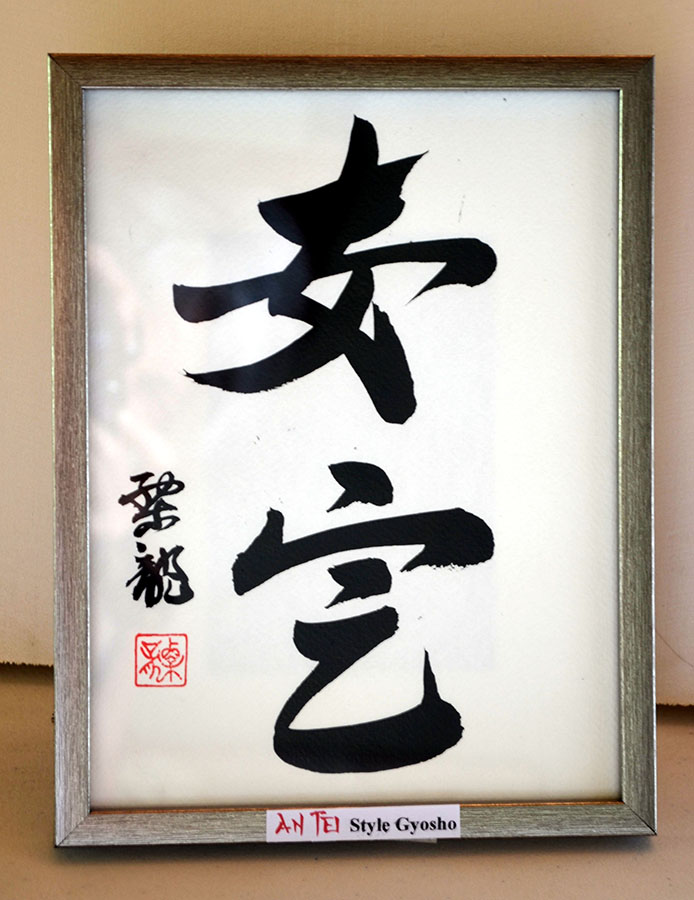 安定
栗龍
AN TEI Style Gyosho